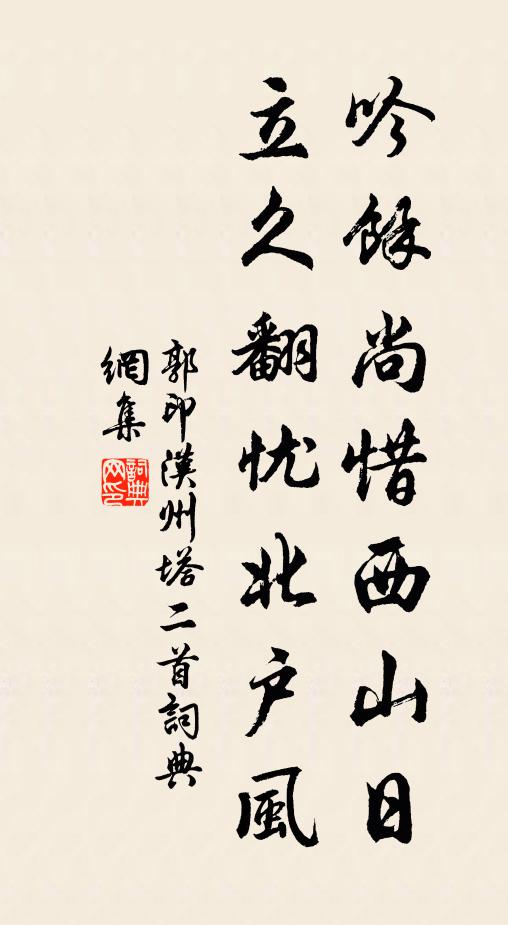 吟餘尚惜西山日
立久翻忧北户風
郭印漢州塔二首詞典
網集
詞典
网印